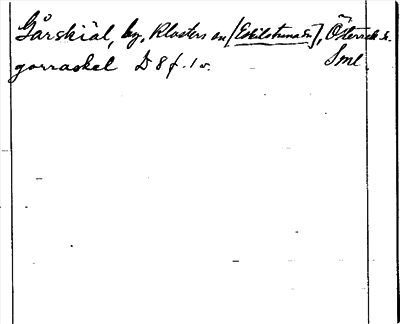 Gårskiäl, by, Klosters sn [Eskilstuna sn], Österrek. h.
Sml.
gorraskel D 8 f. 1 v.